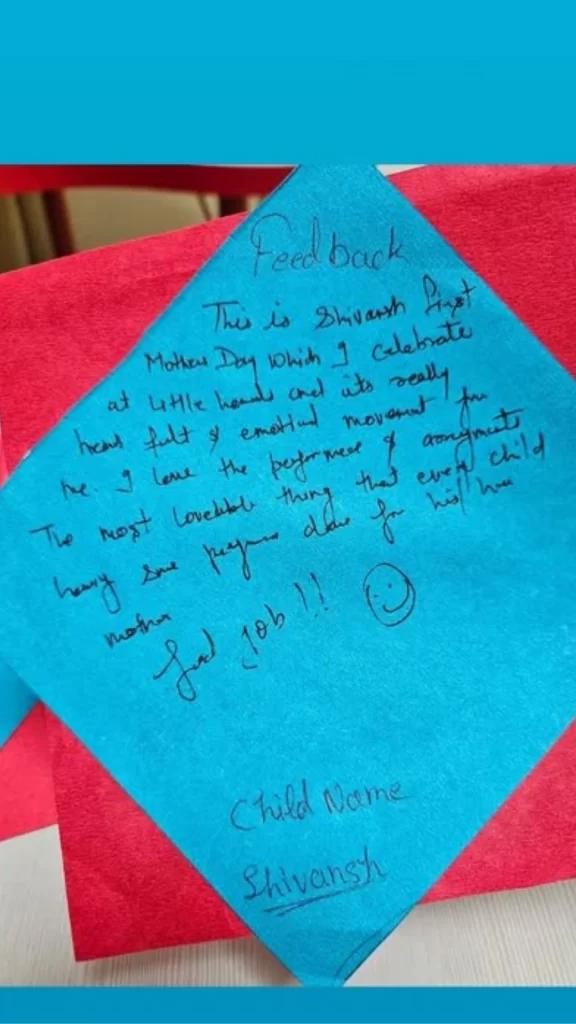 Feedback
This is Shivansh first
Mothers Day which I celebrate
at little hands and its really
heart felt & emotional movement for
me. I love the performee & arrangments
The most loveable thing that every child
having some performe done for his/her
mother
Good job!!
Child Name
Shivansh